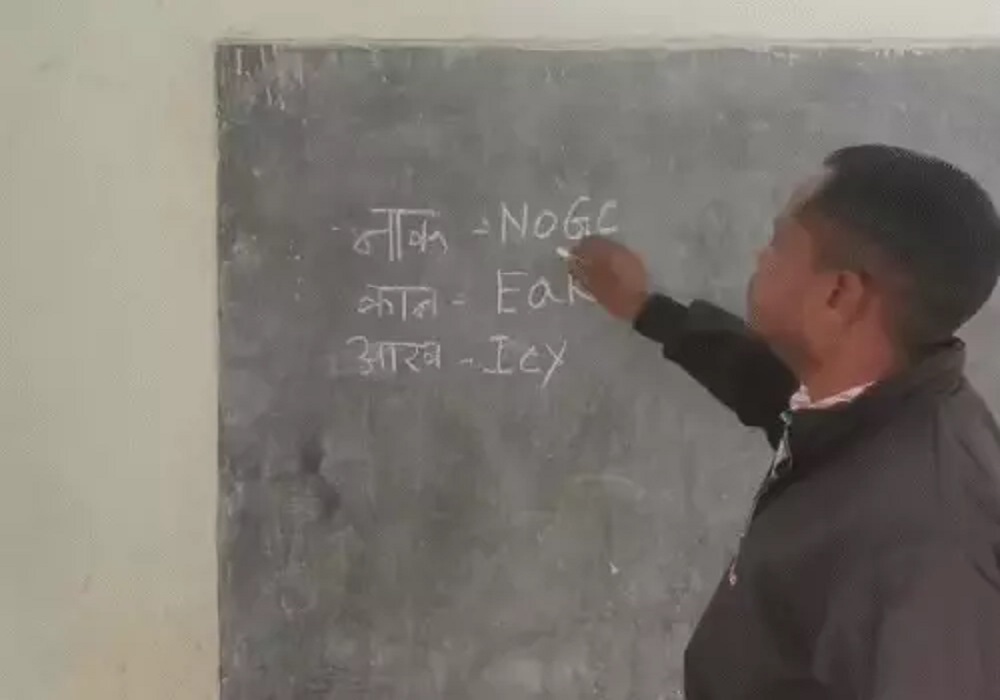 नाक - NOGC
कान - Ear
आख - Iey